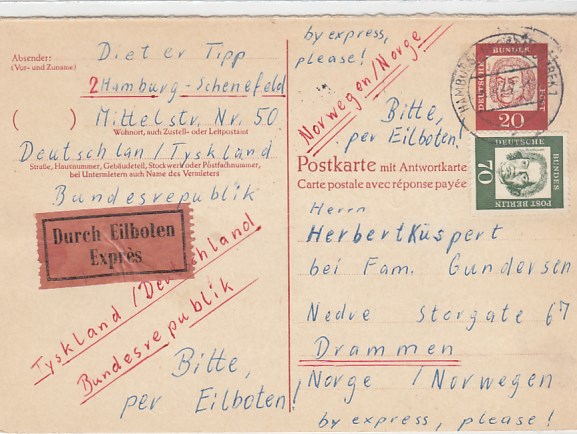 Absender:
(Vor- und Zuname)
Dieter Tipp
2 Hamburg-Schenefeld
( ) Mittelstr. Nr. 50
Wohnort, auch Zustell- oder Leitpostamt
Deutschlan/Tyskland
Straße, Hausnummer, Gebäudeteil, Stockwerk oder Postfachnummer,
bei Untermietern auch Name des Vermieters
Bundesrepublik
Durch Eilboten
Exprès
Tyskland/Deutschland
Bundesrepublik
Bitte,
per Eilboten!
by express,
please!
Norwegen/Norge
Bitte,
per Eilboten!
DEUTSCHE BUNDESPOST
20
HAMBURG
DEUTSCHE BUNDESPOST BERLIN
70
Postkarte mit Antwortkarte
Carte postale avec réponse payée
Herrn
Herbert Küspert
bei Fam. Gundersen
Nedre Storgate 67
Drammen
Norge / Norwegen
by express, please!